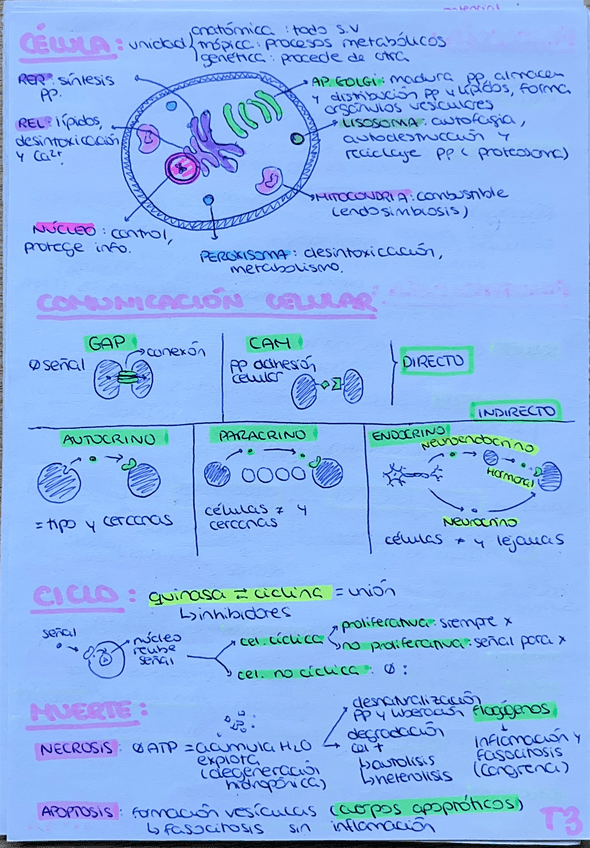 CÉLULA: unidad
anatómica: todo s.v
trópica: procesos metabólicos
genética: procede de otra
RER: síntesis
pp.
REL: lípidos,
desintoxicación
y Ca²⁺.
NÚCLEO: control,
protege info.
AP. GOLGI: madura pp, almacen
y distribución pp y lípidos, forma
orgánulos vesiculares
LISOSOMA: autofagia,
autodestrucción y
reciclaje pp (proteosoma)
MITOCONDRIA: combustible
(endosimbiosis)
PEROXISOMA: desintoxicación,
metabolismo.
COMUNICACIÓN CELULAR
GAP
Ø señal
conexón
CAM
pp adhesión
celular
DIRECTO
INDIRECTO
AUTOCRINO
= tipo y cercanas
PARACRINO
células ≠ y
cercanas
ENDOCRINO
Neuroendocrino
Hormonal
Neurocrino
células ≠ y lejanas
CICLO: quinasa ⇌ ciclina = unión
↳ inhibidores
señal
núcleo
recibe
señal
cel. cíclica
proliferativa: siempre x
no proliferativa: señal para x
cel. no cíclica: Ø :
MUERTE:
NECROSIS: Ø ATP = acumula H₂O
explota
(degeneración
hidrópica)
desnaturalización
pp y liberación flogógenos
degradación
cel +
↳ autolisis
↳ heterolisis
inflamación y
fagocitosis
(gangrena)
APOPTOSIS: formación vesículas (cuerpos apoptóticos)
↳ fagocitosis sin inflamación
T3